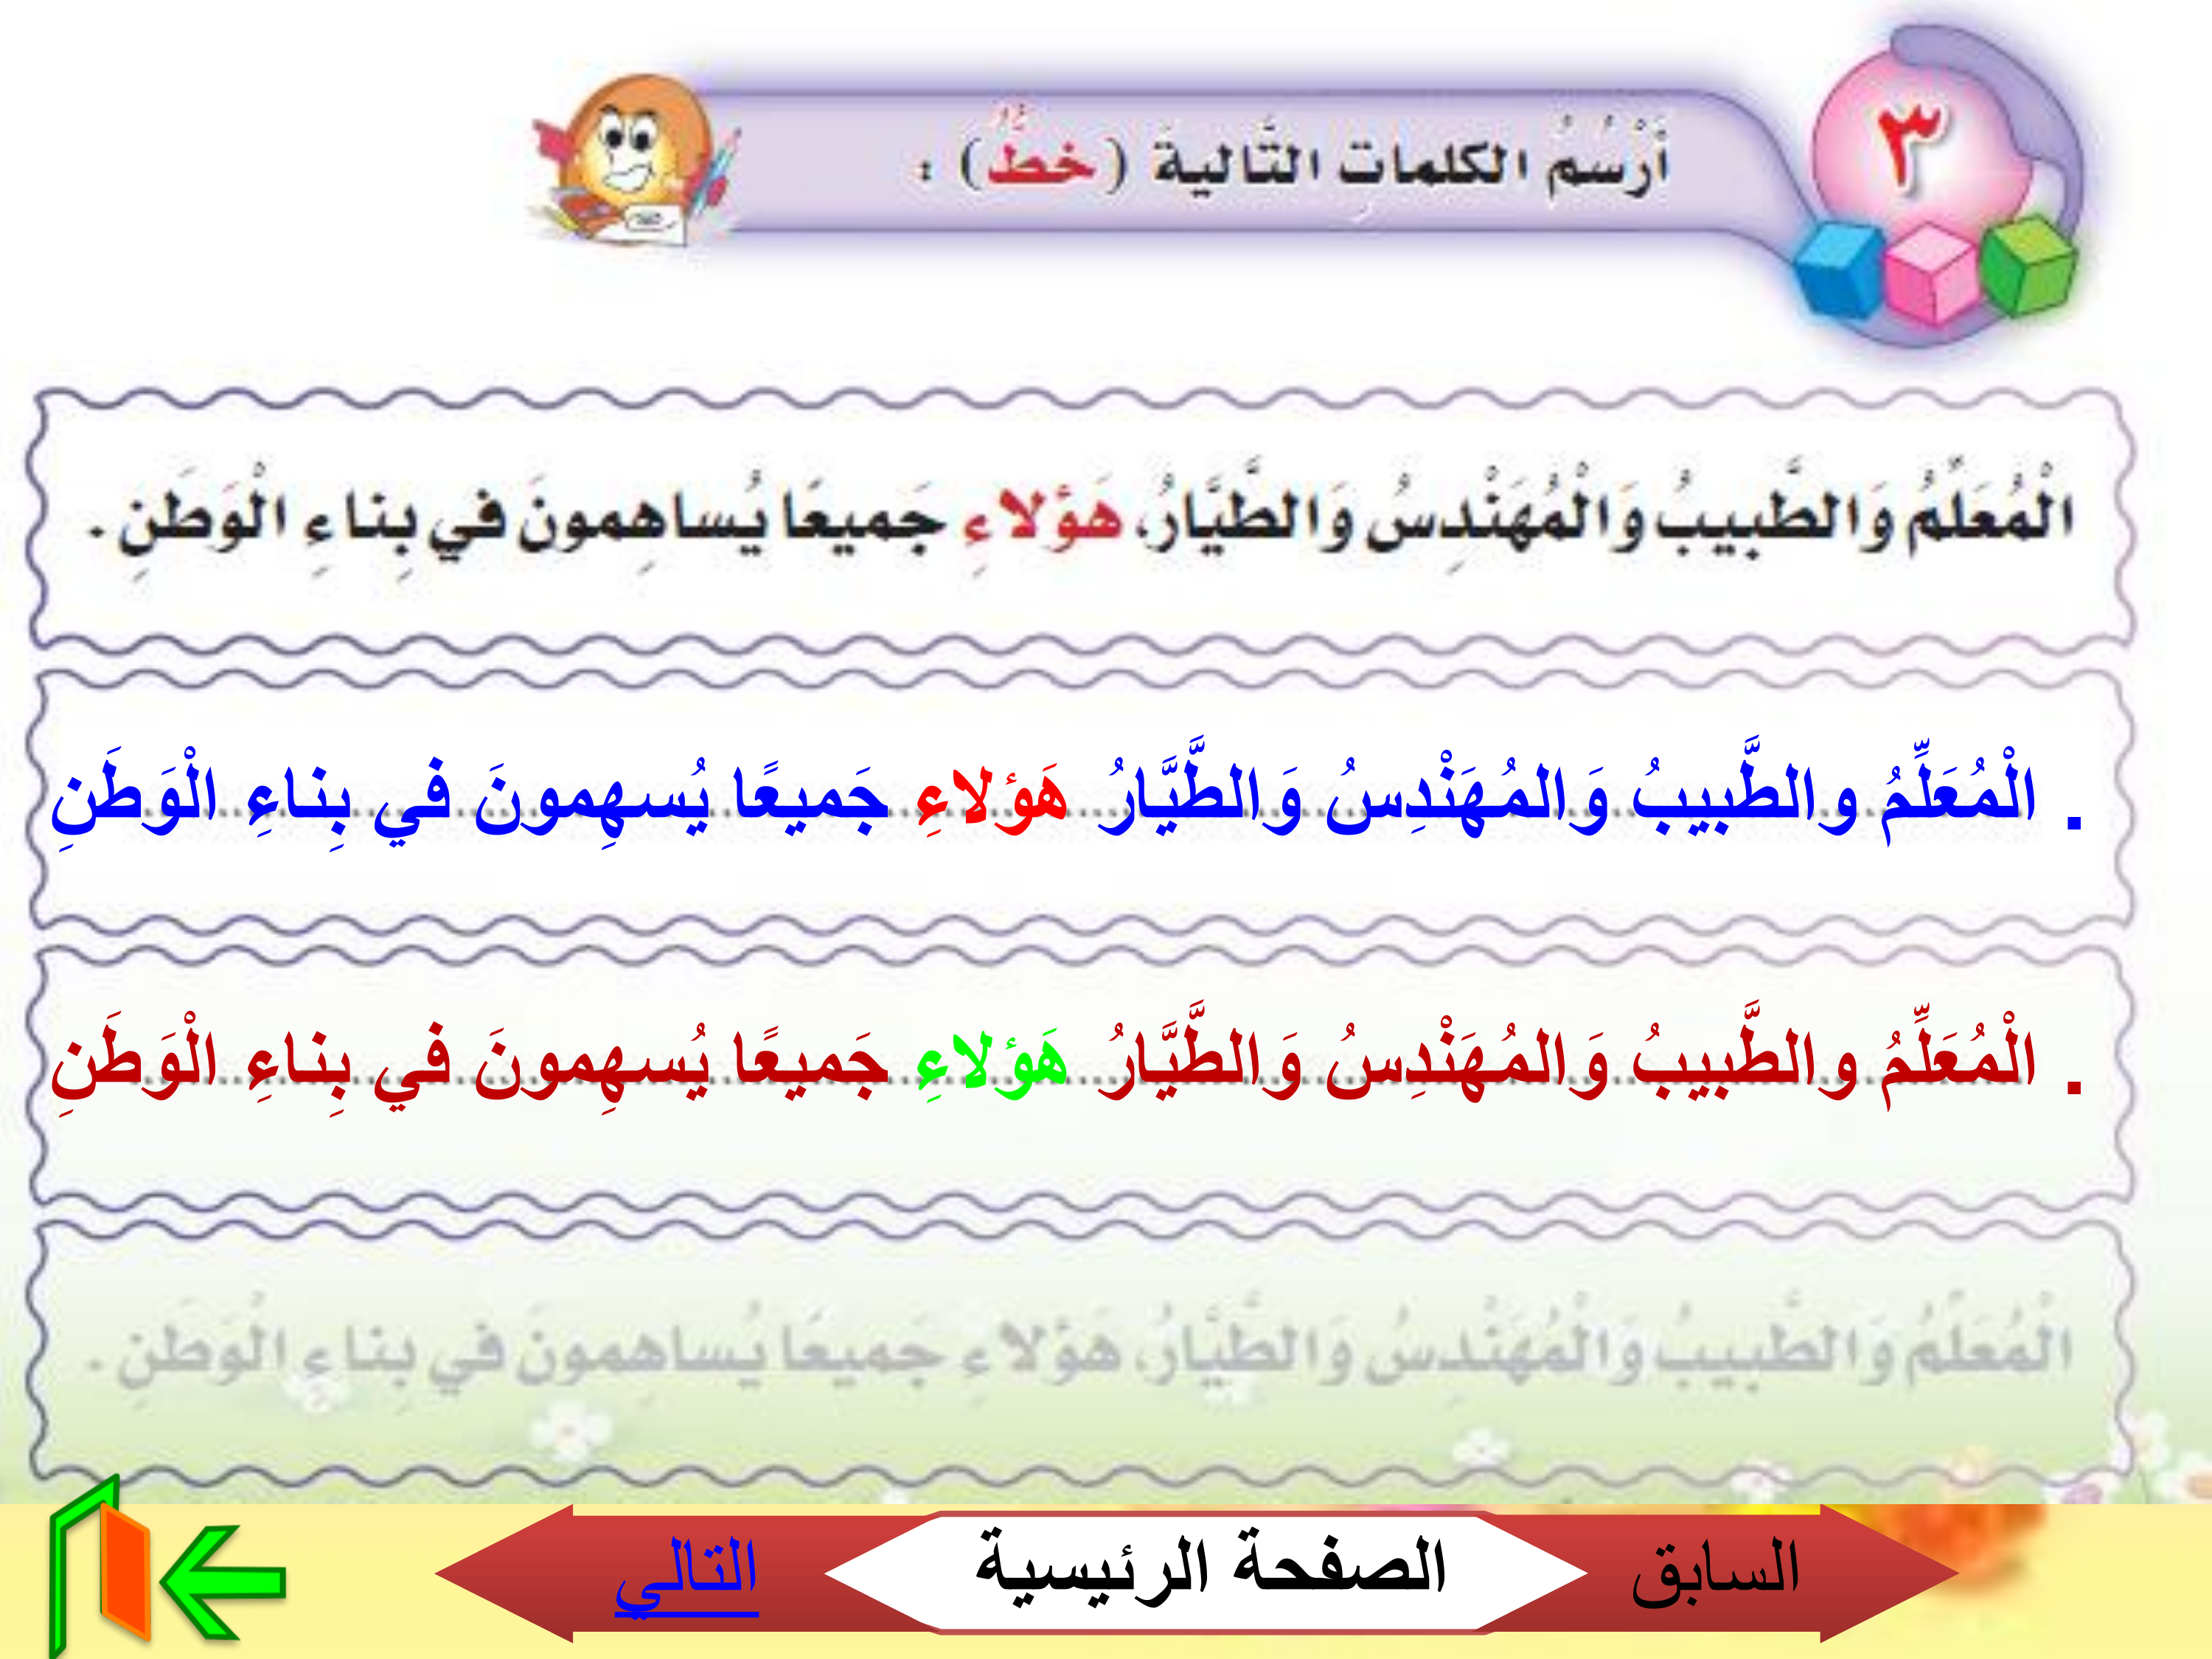 ٣
أَرْسُمُ الكلماتِ التَّاليةَ (خطٌّ) :
الْمُعَلِّمُ وَالطَّبيبُ وَالْمُهَنْدِسُ وَالطَّيَّارُ، هَؤلاءِ جَميعًا يُساهِمونَ في بِناءِ الْوَطَنِ .
. الْمُعَلِّمُ والطَّبيبُ وَالمُهَنْدِسُ وَالطَّيَّارُ هَؤلاءِ جَميعًا يُسهِمونَ في بِناءِ الْوَطَنِ
. الْمُعَلِّمُ والطَّبيبُ وَالمُهَنْدِسُ وَالطَّيَّارُ هَؤلاءِ جَميعًا يُسهِمونَ في بِناءِ الْوَطَنِ
الْمُعَلِّمُ وَالطَّبيبُ وَالْمُهَنْدِسُ وَالطَّيَّارُ، هَؤلاءِ جَميعًا يُساهِمونَ في بِناءِ الْوَطَنِ .
السابق الصفحة الرئيسية التالي